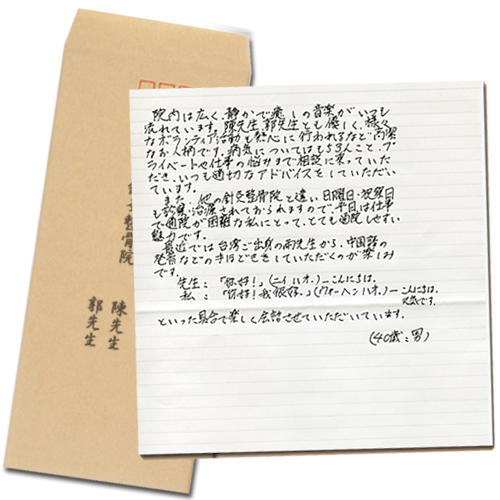 院内は広く、静かで癒しの音楽がいつも
流れています。陳先生、郭先生とも優しく、様々
なボランティア活動も熱心に行われるなど高潔
なお人柄です。病気についてはもちろんこと、プ
ライベートや仕事の悩みまで相談に乗っていた
だき、いつも適切なアドバイスをしていただいてい
ます。
また、他の針灸整骨院と違い、日曜日・祝祭日
も診療・治療されておられますので、平日は仕事
で通院が困難な私にとって、とても通院しやすい
魅力です。
最近では台湾ご出身の両先生から、中国語の
発音などの手ほどきをしていただくのが楽しみ
です。
先生:「你好!」(ニイハオ。)―こんにちは。
私:「你好!我很好。」(ウォーヘンハオ。)―こんにちは。
元気です。
といった具合で楽しく会話させていただいています。
(40歳:男)
整骨院
陳先生
郭先生